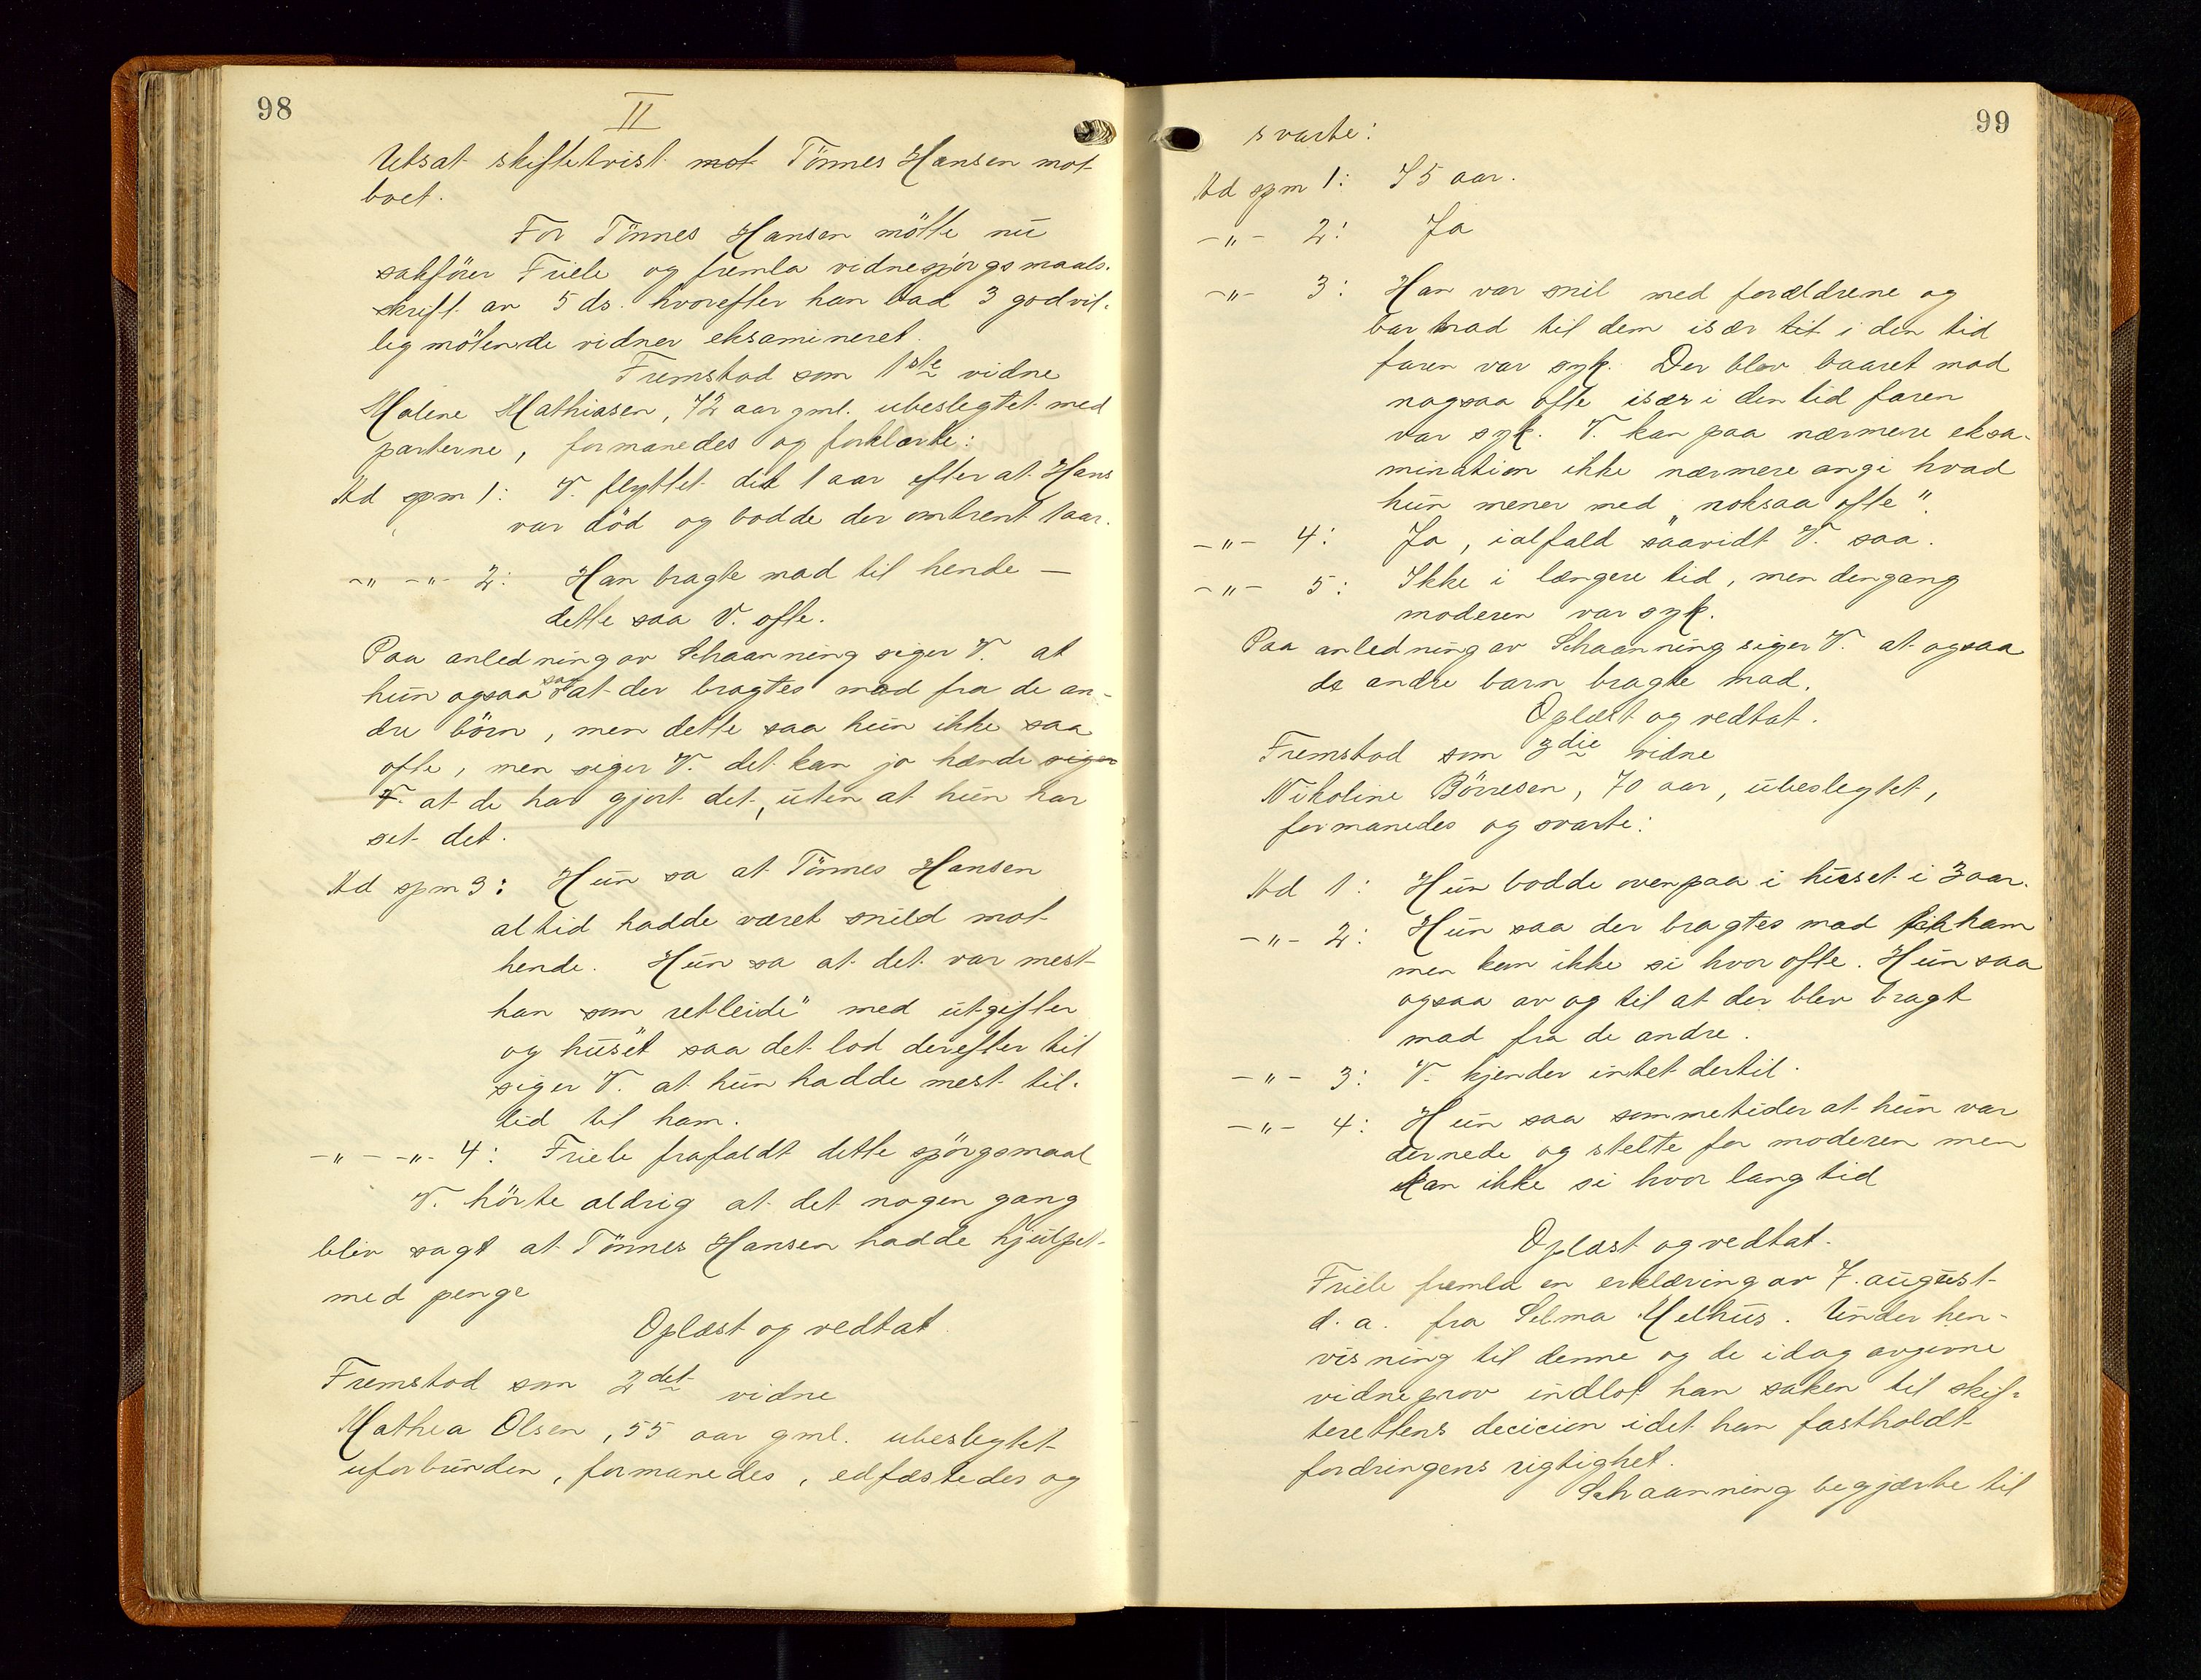 98
II
Utsat skiftetvist mot Tönnes Hansen mot
boet.
For Tönnes Hansen mötte nu
sakförer Friele og fremla vidnespörgsmaals-
skrift av 5 ds. hvorefter han bad 3 godvil-
lig mötende vidner eksamineret.
Fremstod som 1ste vidne
Malene Mathiasen, 72 aar gml. ubeslegtet med
parterne, formanedes og forklarte:
Ad spm 1: V. flyttet dit 1 aar efter at Hans
var död og bodde der omtrent 1 aar.
-"- -"- 2: Han bragte mad til hende —
dette saa V. ofte.
Paa anledning av Schaanning siger V. at
hun ogsaa saa at der bragtes mad fra de an-
dre börn, men dette saa hun ikke saa
ofte, men siger V. det kan jo hænde siger
V. at de har gjort det, uten at hun har
set det.
Ad spm 3: Hun sa at Tönnes Hansen
altid hadde været snild mot
hende. Hun sa at det var mest
han som "retleide" med utgifter
og huset saa det lod derefter til
siger V. at hun hadde mest til-
tid til ham.
-"- -"- 4: Friele frafaldt dette spörgsmaal
V. hörte aldrig at det nogen gang
blev sagt at Tönnes Hansen hadde hjulpet
med penge
Oplæst og vedtat
Fremstod som 2det vidne
Mathea Olsen, 55 aar gml. ubeslegtet
uforbunden, formanedes, edfæstedes og
99
svarte:
Ad spm 1: I 5 aar.
-"- 2: Ja
-"- 3: Han var snil med forældrene og
bar mad til dem især tit i den tid
faren var syk. Der blev baaret mad
nogsaa ofte især i den tid faren
var syk. V. kan paa nærmere eksa-
mination ikke nærmere angi hvad
hun mener med "noksaa ofte".
-"- 4: Ja, ialfald saavidt V. saa.
-"- 5: Ikke i længere tid, men dengang
moderen var syk.
Paa anledning av Schaanning siger V. at ogsaa
de andre barn bragte mad.
Oplæst og vedtat.
Fremstod som 3die vidne
Nikoline Börresen, 70 aar, ubeslegtet,
formanedes og svarte:
Ad 1: Hun bodde ovenpaa i huset i 3 aar.
-"- 2: Hun saa der bragtes mad til ham
men kan ikke si hvor ofte. Hun saa
ogsaa av og til at der blev bragt
mad fra de andre.
-"- 3: V. kjender intet dertil.
-"- 4: Hun saa sommetider at hun var
dernede og stelte for moderen men
kan ikke si hvor lang tid
Oplæst og vedtat.
Friele fremla en erklæring av 7. august
d. a. fra Selma Melhus. Under hen-
visning til denne og de idag avgivne
vidneprov indlot han saken til skif-
terettens decicion idet han fastholdt
fordringens rigtighet.
Schaanning begjærte til